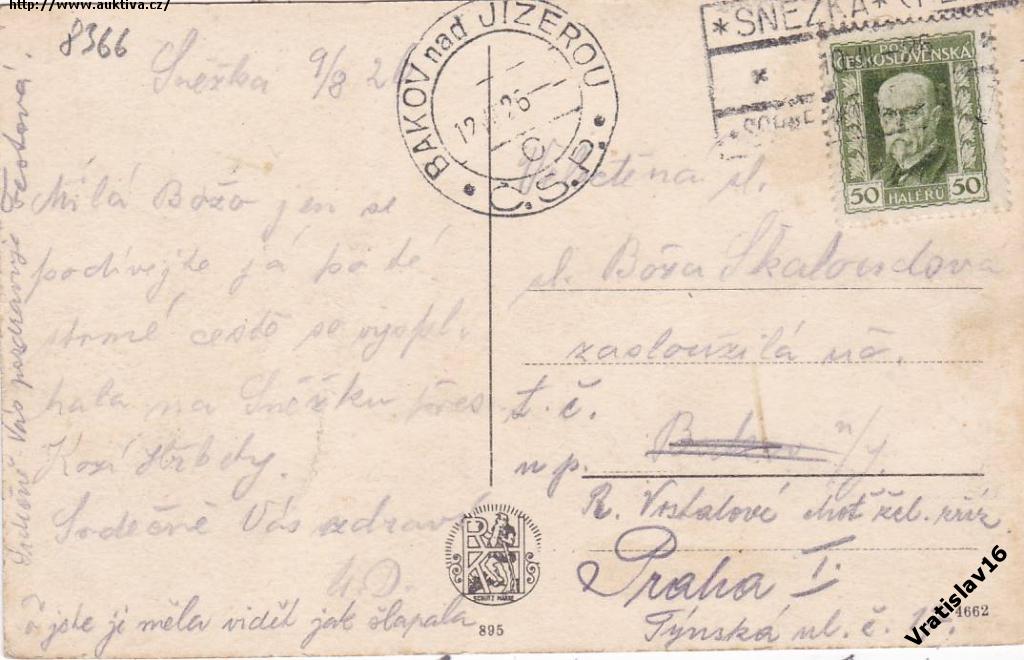 http://www.auktiva.cz/
8366
Sněžka 9/8 26
Milá Božo jen se
podívejte já po té
strmé cestě se vyšpl-
hala na Sněžku přes
Kozí hřbety.
Srdečně Vás zdraví
jste ji měla vidět jak šlapala
Srdečně Vás pozdravuje
BAKOV nad JIZEROU
12 26
Č.S.P.
*SNĚŽKA*
POŠTA
ČESKOSLOVENSKÁ
50 HALÉŘŮ 50
Velectěná sl.
sl. Boža Škaloudova
zasloužilá uč.
t. č.
n/J.
u p.
R. Vostalové choť žel.
Praha I.
Týnská ul. č.
RAKI
SCHUTZ MARKE
895
4662
Vratislav16